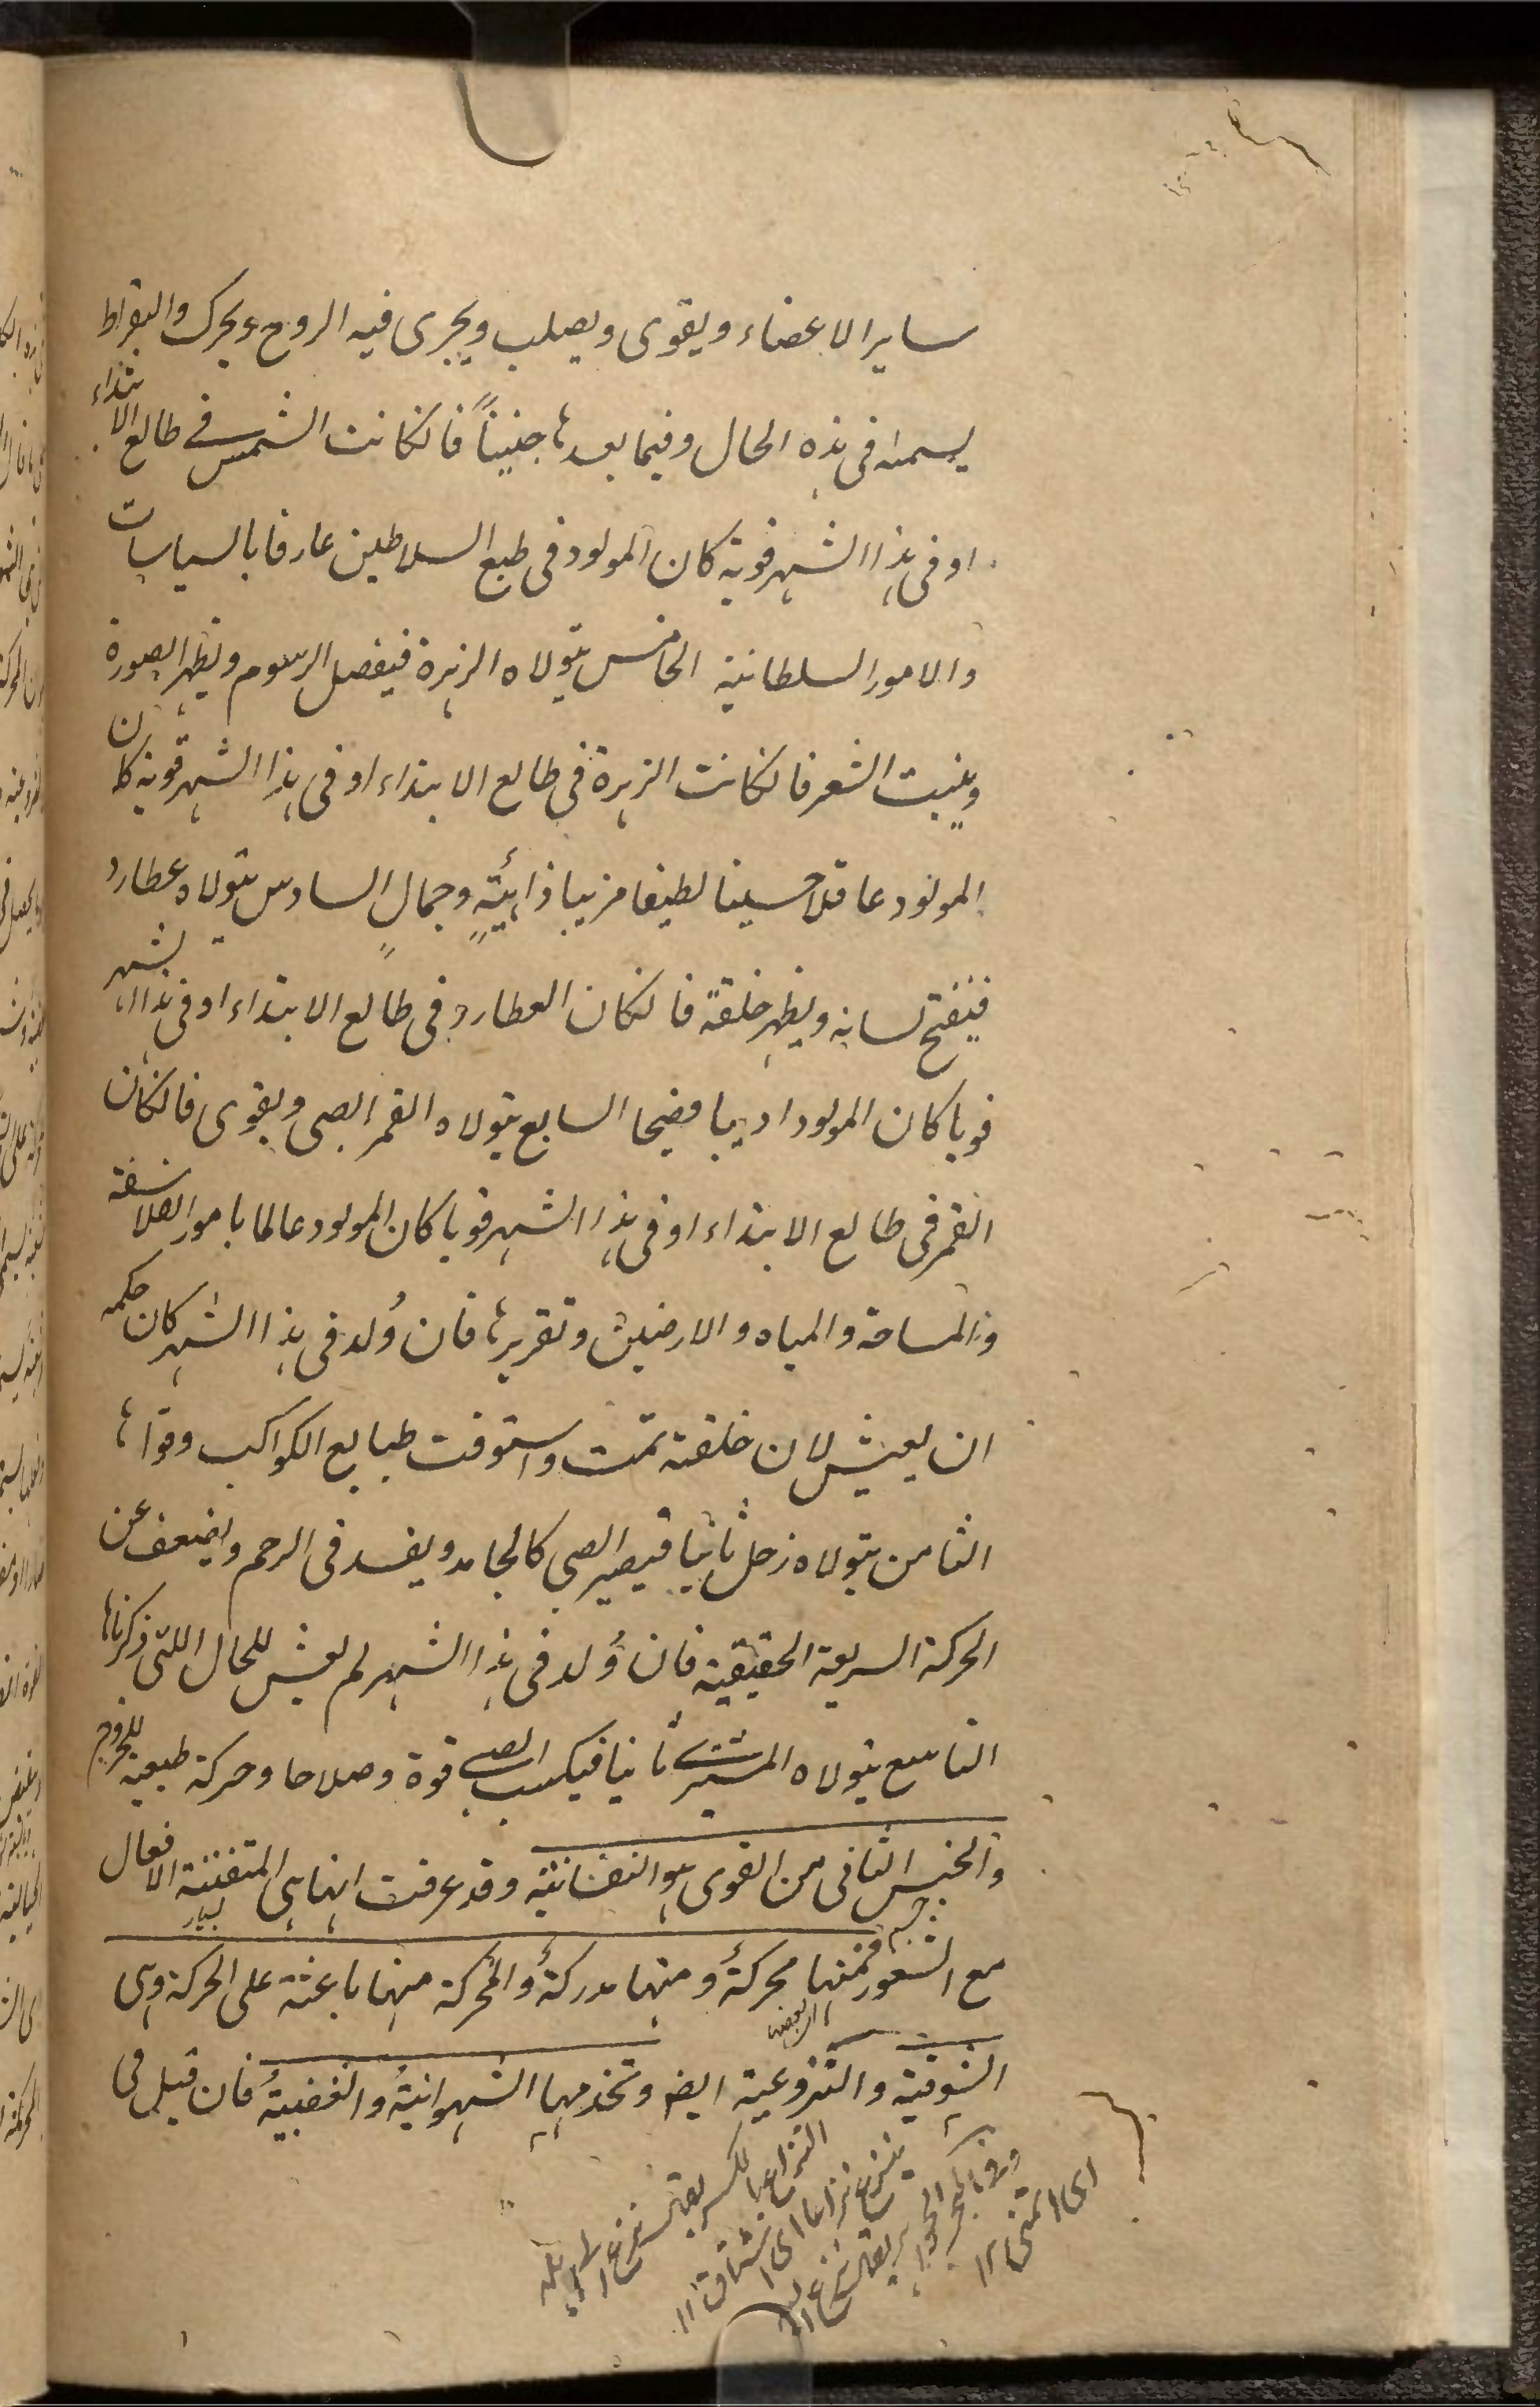 ساير الاعضاء ويقوى ويصلب ويجرى فيه الروح ويحرك والبقراط
يسميه فى هذه الحال وفيما بعدها جنيناً فانكانت الشمس فى طالع الابتداء
او فى هذا الشهر قوية كان المولود فى طبع السلاطين عارفا بالسياسات
والامور السلطانية الخامس يتولاه الزهرة فيفصل الرسوم ويظهر الصورة
وينبت الشعر فانكانت الزهرة فى طالع الابتداء او فى هذا الشهر قوية كان
المولود عاقلا حسينا لطيفا مزيبا ذا هيئةٍ وجمالٍ السادس يتولاه عطارد
فينفتح لسانه ويظهر خلقة فانكان العطارد فى طالع الابتداء او فى هذا الشهر
قويا كان المولود اديبا فصيحا السابع يتولاه القمر الصبى ويقوى فانكان
القمر فى طالع الابتداء او فى هذا الشهر قويا كان المولود عالما بامور الفلاسفة
والمساحة والمياه والارضين وتقريرها فان وُلد فى هذا الشهر كان حكمه
ان يعيش لان خلقته تمت واستوفت طبايع الكواكب وقواها
الثامن يتولاه زحل ثانيا فيصير الصبى كالجامد ويفسد فى الرحم ويضعف عن
الحركة السريعة الحقيقية فان وُلد فى هذا الشهر لم يعش للحال اللتى ذكرناها
التاسع يتولاه المشترى ثانيا فيكسب الصبى قوة وصلاحا وحركة طبيعية للخروج
والجنس الثانى من القوى هو النفسانية وقد عرفت انها هى المتفننة الافعال
مع الشعور فمنها محركةٌ ومنها مدركةٌ والمحركة منها باعثة على الحركة وهى
الشوقية والنزوعية ايضا وتخدمها الشهوانيةُ والغضبيةُ فان قيل فى
النزاع بالكسر يقال نزع الى اهله
ينزع نزاعا اى اشتاق ١٢
اى اشتهى ١٢